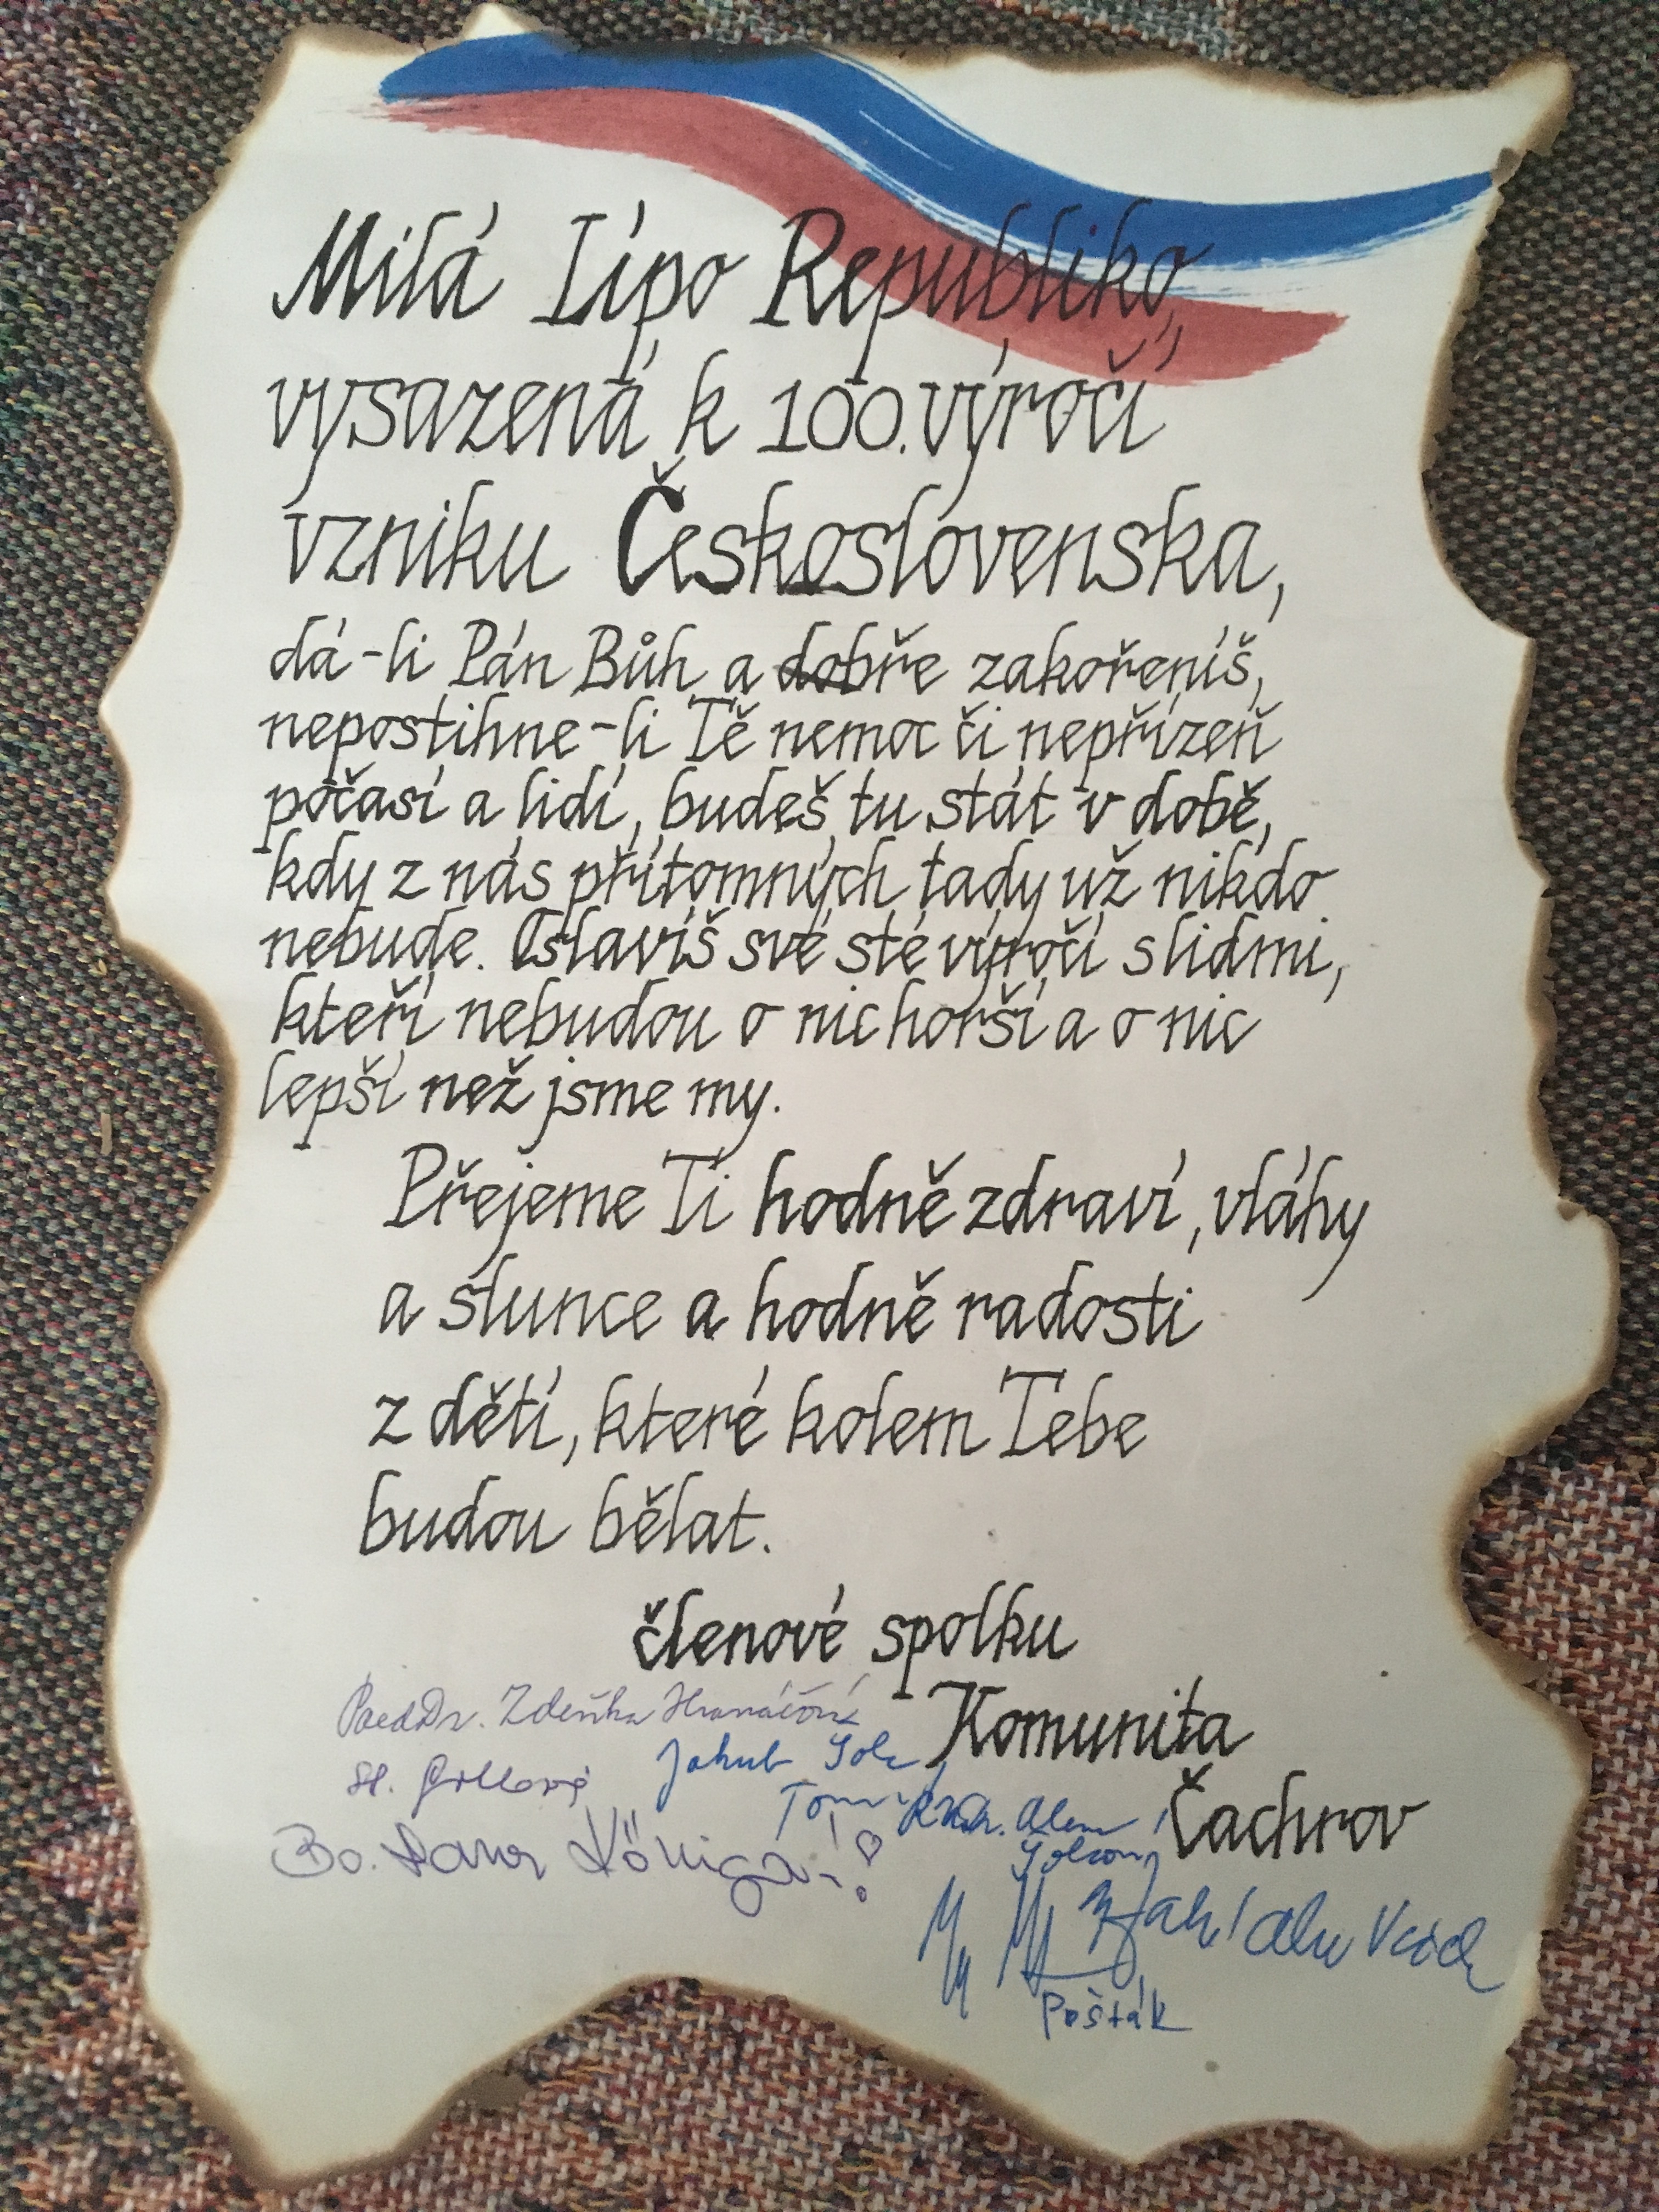 Milá Lípo Republiko,
vysazená k 100. výročí
vzniku Československa,
dá-li Pán Bůh a dobře zakořeníš,
nepostihne-li Tě nemoc či nepřízeň
počasí a lidí, budeš tu stát v době,
kdy z nás přítomných tady už nikdo
nebude. Oslavíš své sté výročí s lidmi,
kteří nebudou o nic horší a o nic
lepší než jsme my.
Přejeme Ti hodně zdraví, vláhy
a slunce a hodně radosti
z dětí, které kolem Tebe
budou bělat.
členové spolku
Komunita
Čachrov
PaedDr. Zdeňka
Jakub
Pošťák